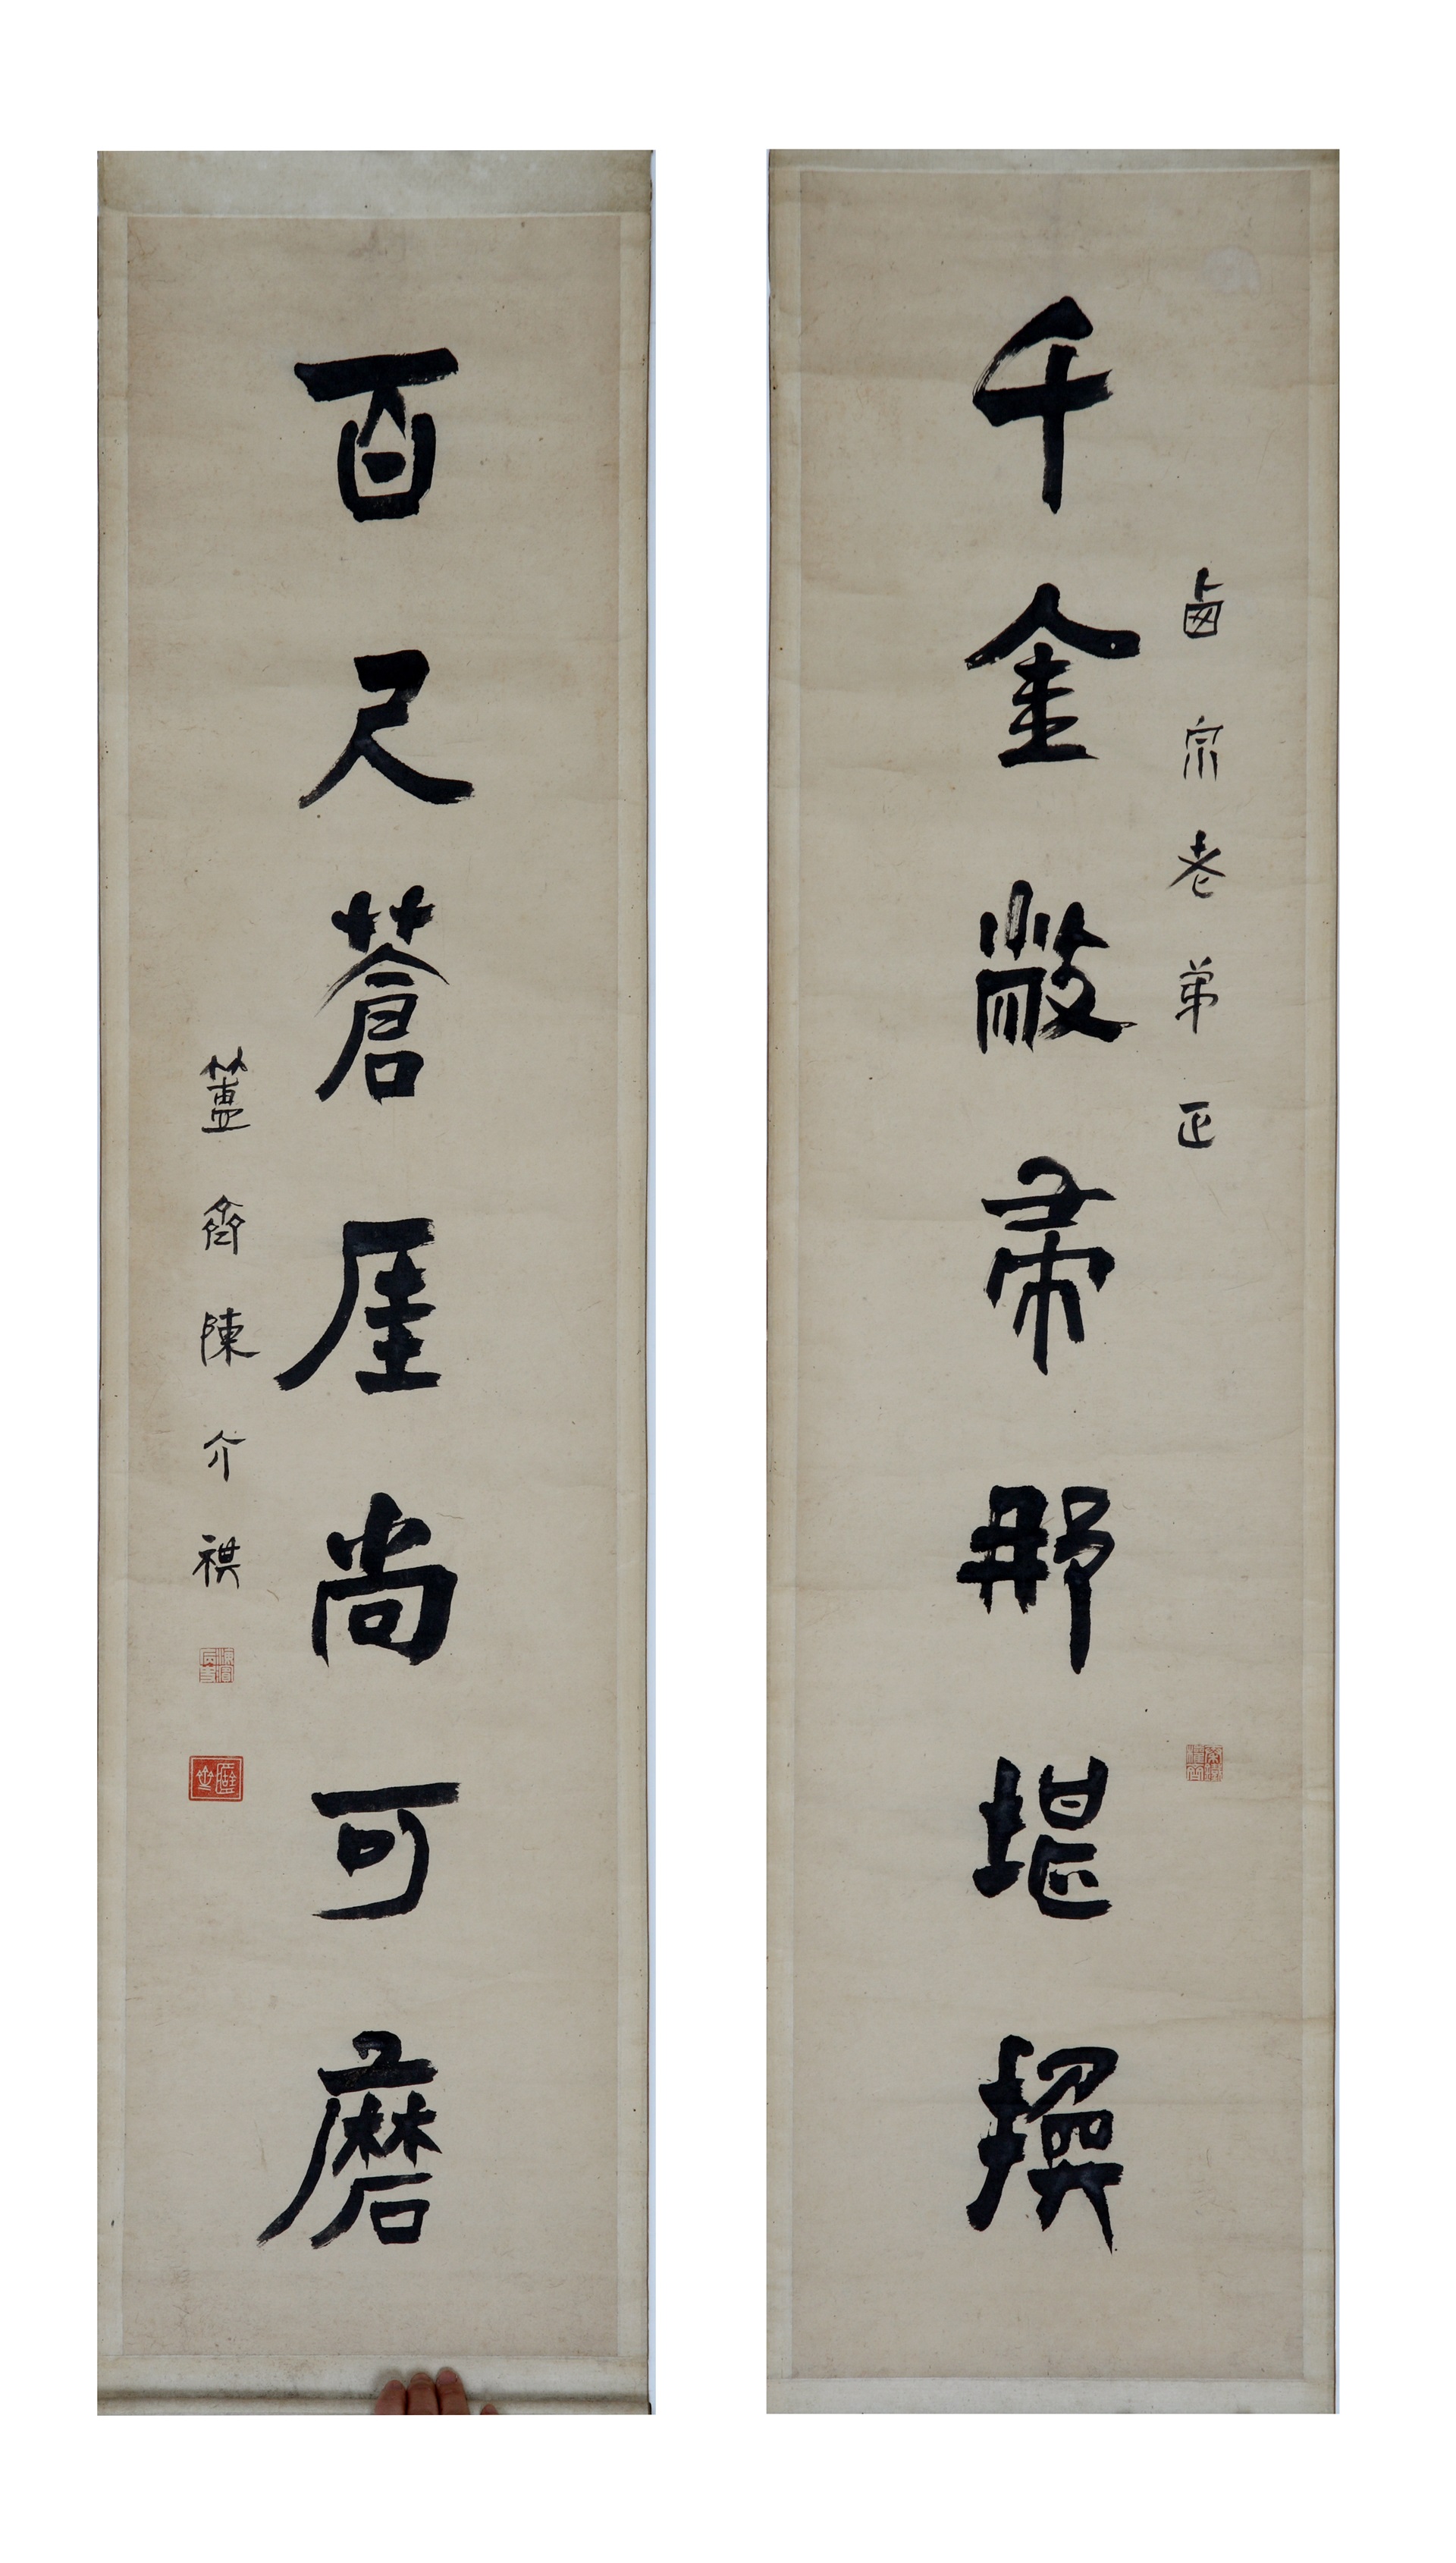 千金敝帚那堪換
鹵宗老弟正
百尺蒼厓尚可磨
簠齋陳介祺